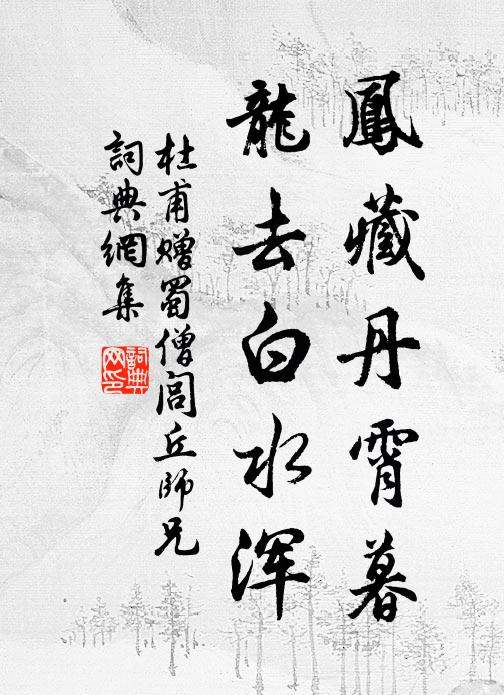 鳳藏丹霄暮
龍去白水浑
杜甫贈蜀僧閭丘師兄
詞典網集
詞典网印